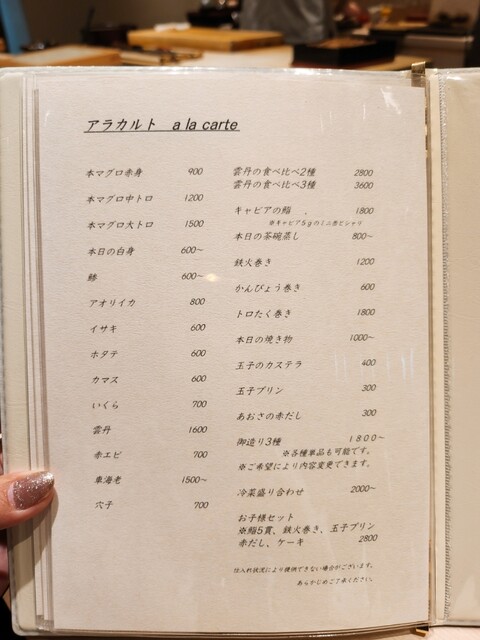 アラカルト a la carte
本マグロ赤身 900
本マグロ中トロ 1200
本マグロ大トロ 1500
本日の白身 600~
鯵 600~
アオリイカ 800
イサキ 600
ホタテ 600
カマス 600
いくら 700
雲丹 1600
赤エビ 700
車海老 1500~
穴子 700
雲丹の食べ比べ2種 2800
雲丹の食べ比べ3種 3600
キャビアの鮨 1800
※キャビア5gのミニ巻でシャリ
本日の茶碗蒸し 800~
鉄火巻き 1200
かんぴょう巻き 600
トロたく巻き 1800
本日の焼き物 1000~
玉子のカステラ 400
玉子プリン 300
あおさの赤だし 300
御造り3種 1800~
※各種単品も可能です。
※ご希望により内容変更できます。
冷菜盛り合わせ 2000~
お子様セット
※鮨5貫、鉄火巻き、玉子プリン
赤だし、ケーキ 2800
仕入れ状況により提供できない場合がございます。
あらかじめご了承ください。